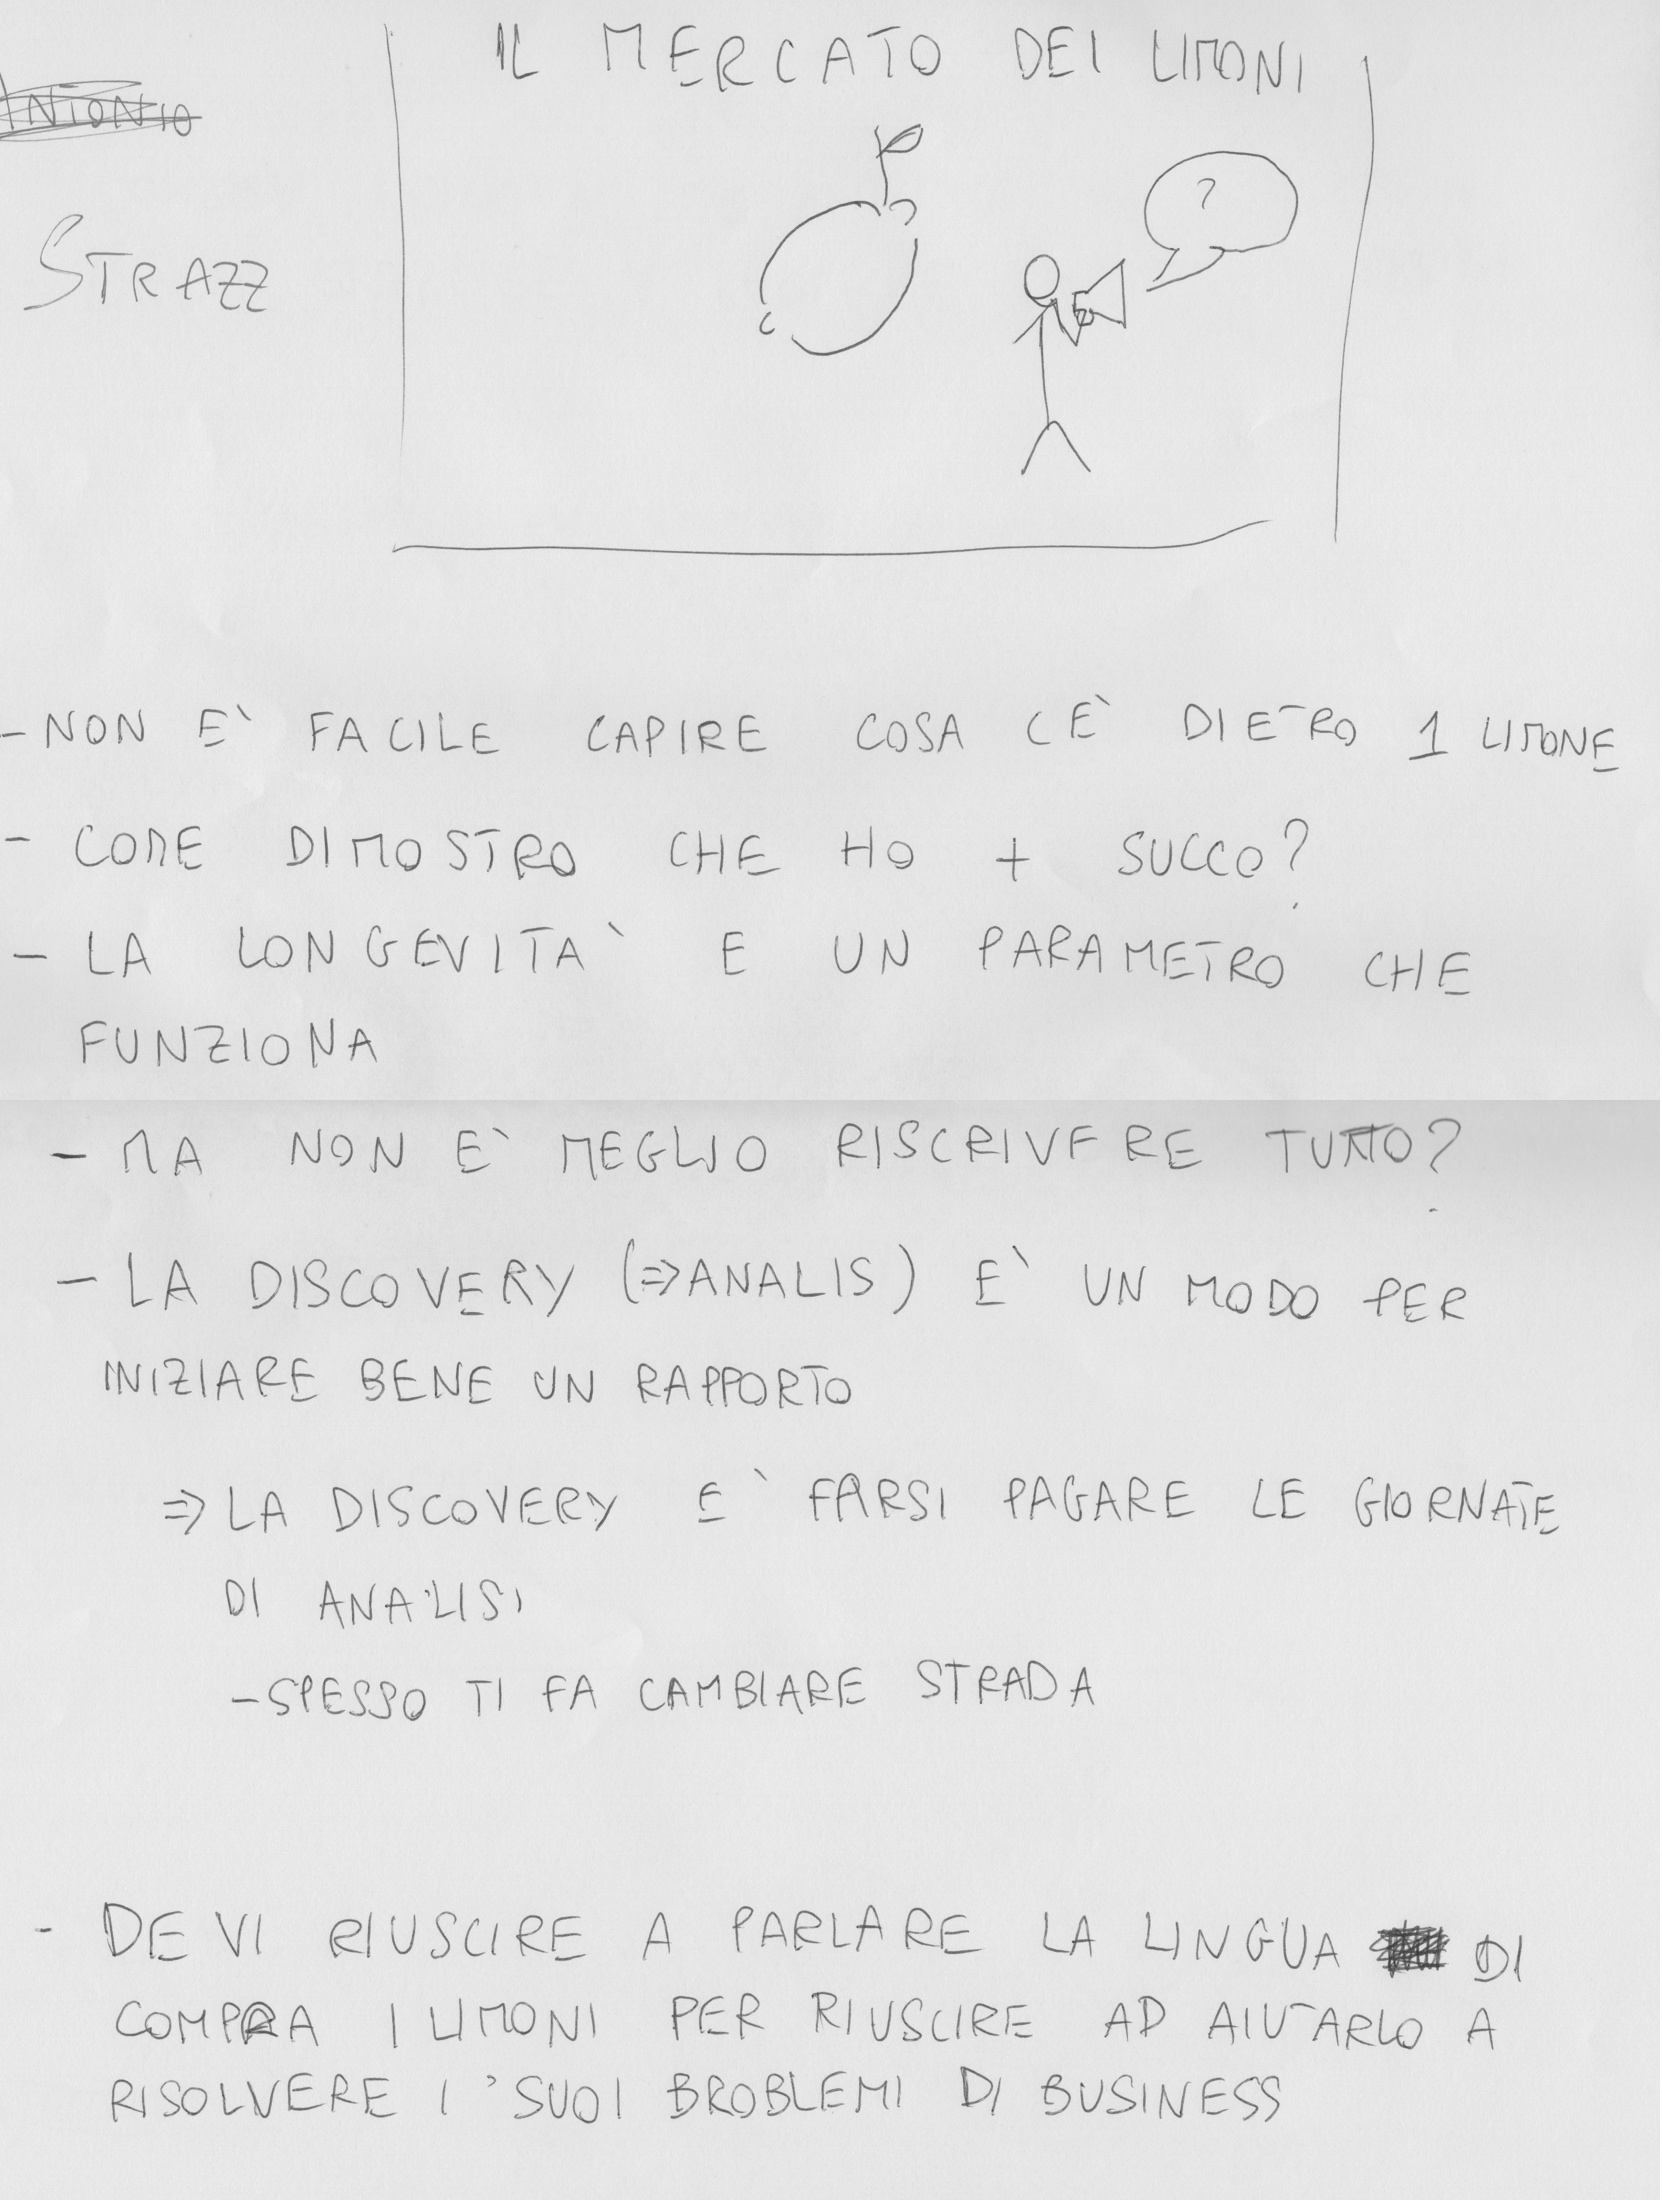 IL MERCATO DEI LIMONI
ANTONIO
?
STRAZZ
- NON E' FACILE CAPIRE COSA C'È DIETRO 1 LIMONE
- COME DIMOSTRO CHE HO + SUCCO?
- LA LONGEVITA' E UN PARAMETRO CHE
FUNZIONA
- MA NON E' MEGLIO RISCRIVERE TUTTO?
- LA DISCOVERY (⇒ANALIS) E' UN MODO PER
INIZIARE BENE UN RAPPORTO
⇒ LA DISCOVERY E' FARSI PAGARE LE GIORNATE
DI ANALISI
- SPESSO TI FA CAMBIARE STRADA
- DEVI RIUSCIRE A PARLARE LA LINGUA DI
COMPRA I LIMONI PER RIUSCIRE AD AIUTARLO A
RISOLVERE I 'SUOI BROBLEMI DI BUSINESS